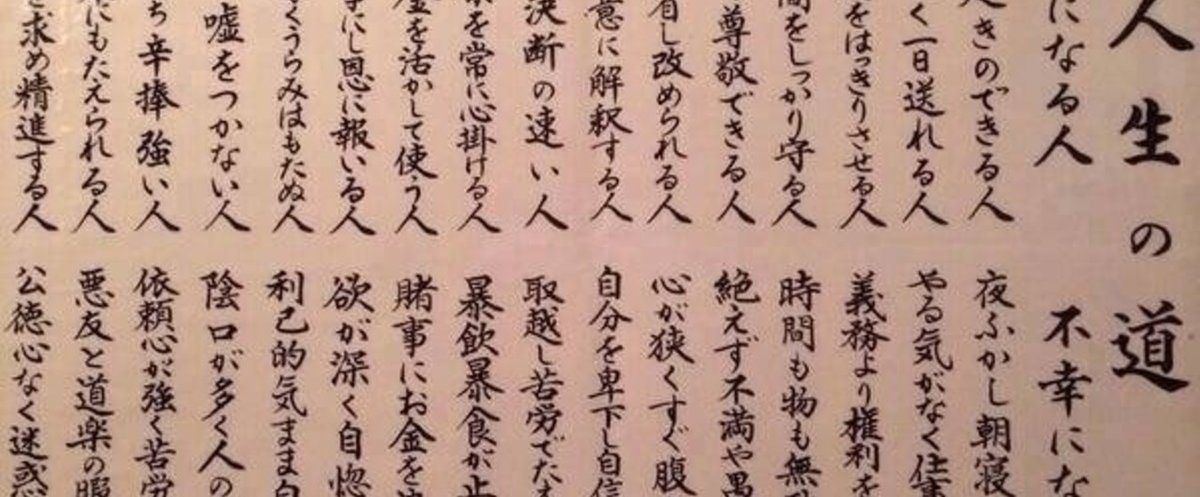 人生の道
になる人
不幸にな
きのできる人
夜ふかし朝寝
く一日送れる人
やる気がなく仕
をはっきりさせる人
義務より権利を
間をしっかり守る人
時間も物も無
尊敬できる人
絶えず不満や
し改められる人
心が狭くすぐ腹
意に解釈する人
自分を卑下し自信
決断の速い人
取越し苦労でた
を常に心掛ける人
暴飲暴食が止
金を活かして使う人
賭事にお金を
にし恩に報いる人
欲が深く自惚
くうらみはもたぬ人
利己的気まま
嘘をつかない人
陰口が多く人の
ち辛捧強い人
依頼心が強く苦労
にもたえられる人
悪友と道楽の
求め精進する人
公徳心なく迷惑